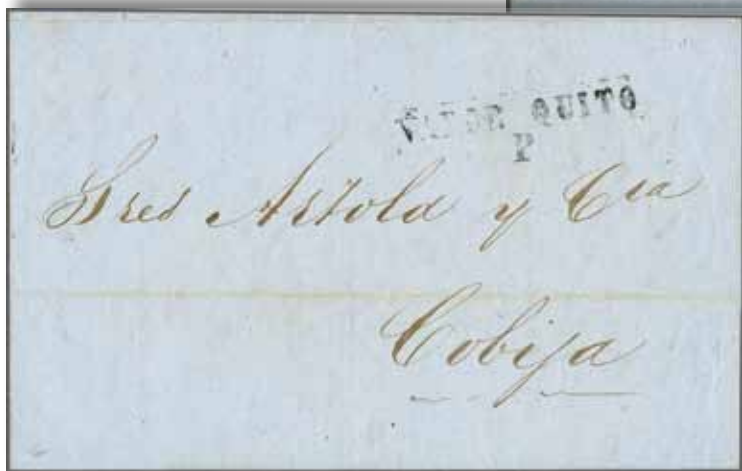 VAPOR QUITO
P
Sres Artola y Cia
Cobija